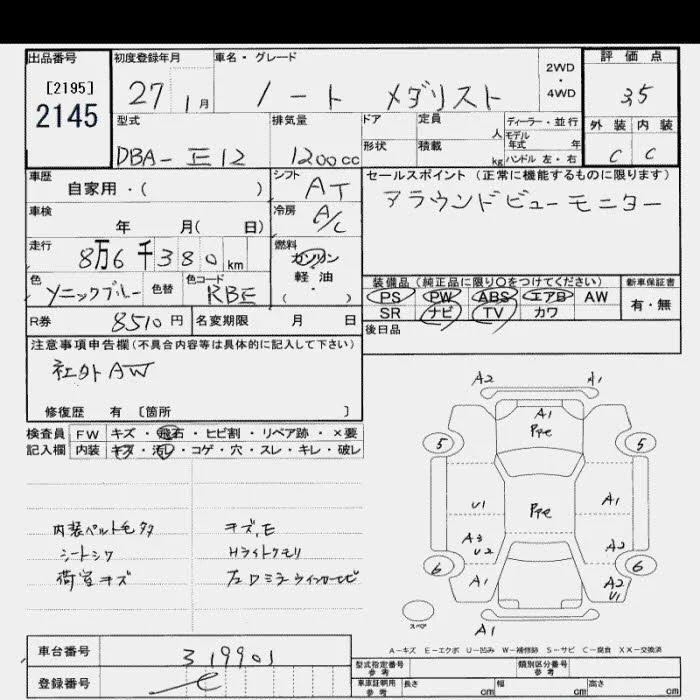 出品番号 初度登録年月 車名・グレード 2WD・4WD 評価点
[2195]
2145
27 1月 ノート メダリスト 3.5
型式 排気量 ドア 定員 人 ディーラー・並行 外装 内装
形状 積載 kg モデル年式 年 ハンドル 左・右
DBA-E12 1200cc C C
車歴 自家用・( ) シフト AT セールスポイント (正常に機能するものに限ります)
アラウンドビューモニター
車検 年 月( 日) 冷房 A/C
走行 8万6千380km 燃料 ガソリン・軽油・( )
色 ソニックブルー 色替 色コード RBE
装備品 (純正品に限り〇をつけてください) 新車保証書
PS PW ABS エアB AW 有・無
SR ナビ TV カワ
R券 8510円 名変期限 月 日
後日品
注意事項申告欄 (不具合内容等は具体的に記入して下さい)
社外AW
修復歴 有 [箇所 ]
検査員 FW キズ・飛石・ヒビ割・リペア跡・×要
記入欄 内装 キズ・汚レ・コゲ・穴・スレ・キレ・破レ
内装ベルトモ
キズ,モ
シートシワ
Hライトクモリ
荷室キズ
左ドミラウインカーヒビ
A2 A1
A1
PPe
5 5
U1 PPe A1
A3 U2 A2
6 6
A1 A2 U1
スペア
A1
A-キズ E-エクボ U-凹み W-補修跡 S-サビ C-腐食 XX-交換済
車台番号 319901
登録番号
型式指定番号 参考 類別区分番号 参考
車庫証明用 参考 長さ cm 幅 cm 高さ cm